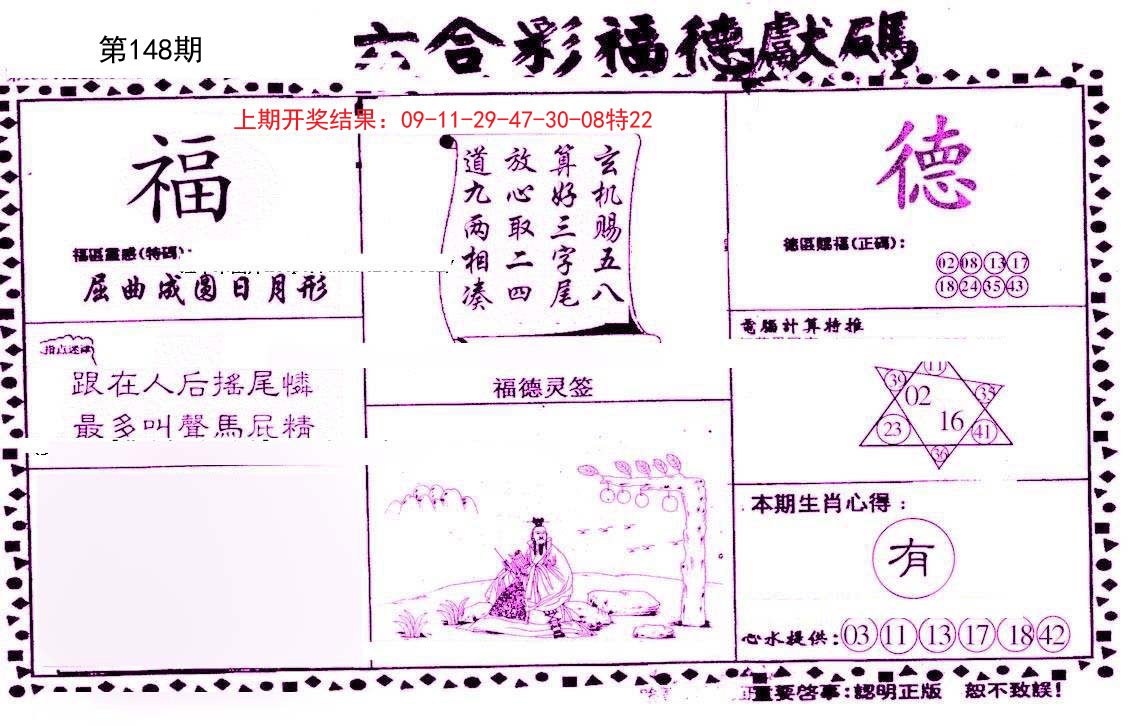 第148期
六合彩福德獻碼
上期开奖结果：09-11-29-47-30-08特22
福
福區靈感(特碼):
屈曲成圆日月形
指点迷津
跟在人后搖尾憐
最多叫聲馬屁精
玄机赐五八
算好三字尾
放心取二四
道九两相凑
福德灵签
德
德區賜福(正碼):
02 08 13 17
18 24 35 43
電腦計算特推
11
39 02 35
23 16 41
36
本期生肖心得：
有
心水提供:03 11 13 17 18 42
重要啓事:認明正版 恕不致誤!